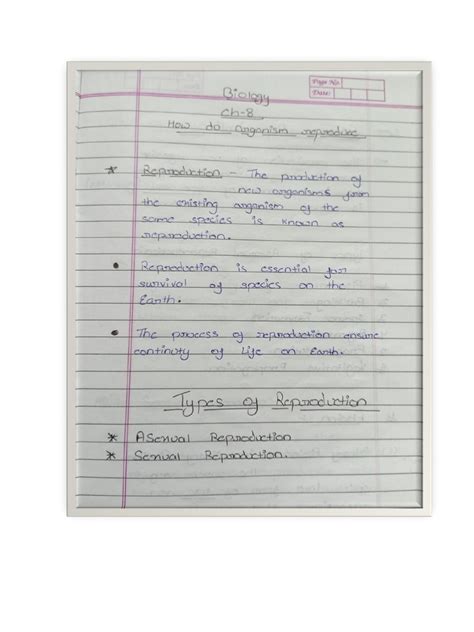 Page No.
Date:
Biology
Ch-8
How do organism reproduce
* Reproduction - The production of
new organisms from
the existing organism of the
same species is known as
reproduction.
• Reproduction is essential for
survival of species on the
Earth.
• The process of reproduction ensure
continuity of Life on Earth.
Types of Reproduction
* Asexual Reproduction
* Sexual Reproduction.